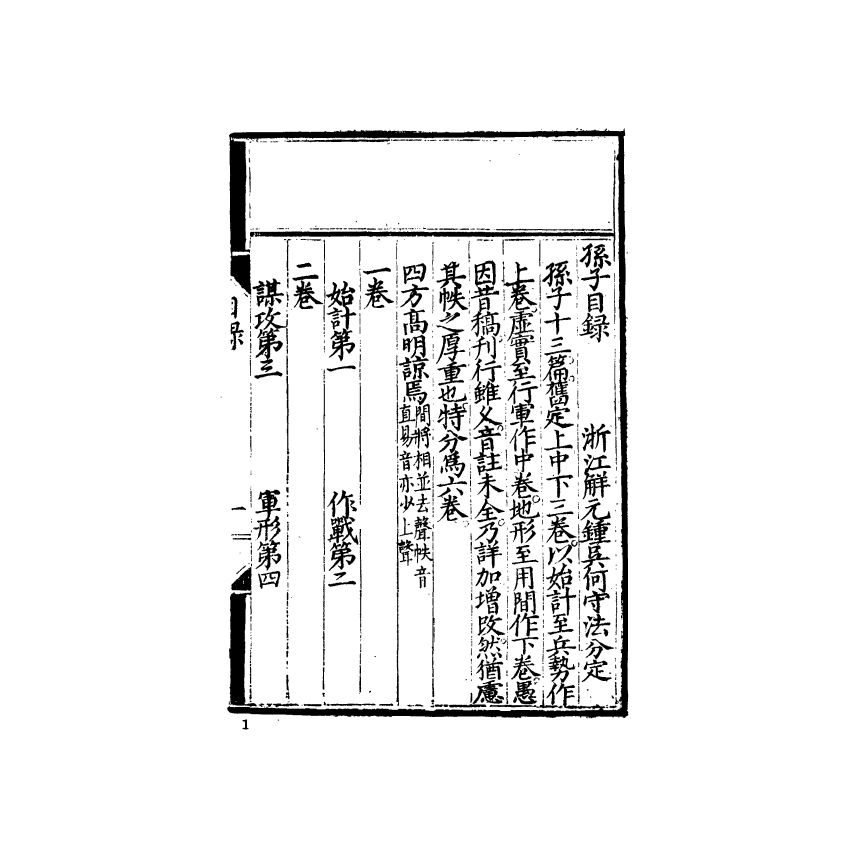 孫子目録　浙江解元鍾吳何守法分定
孫子十三篇舊定上中下三卷。以始計至兵勢作
上卷。虛實至行軍作中卷。地形至用間作下卷。愚
因昔稿刊行雖久。音註未全。乃詳加增改。然猶慮
其帙之厚重也。特分爲六卷。
四方高明諒焉間將相並去聲帙音
直易音亦少上聲
一卷
始計第一　作戰第二
二卷
謀攻第三　軍形第四
目録
一
1